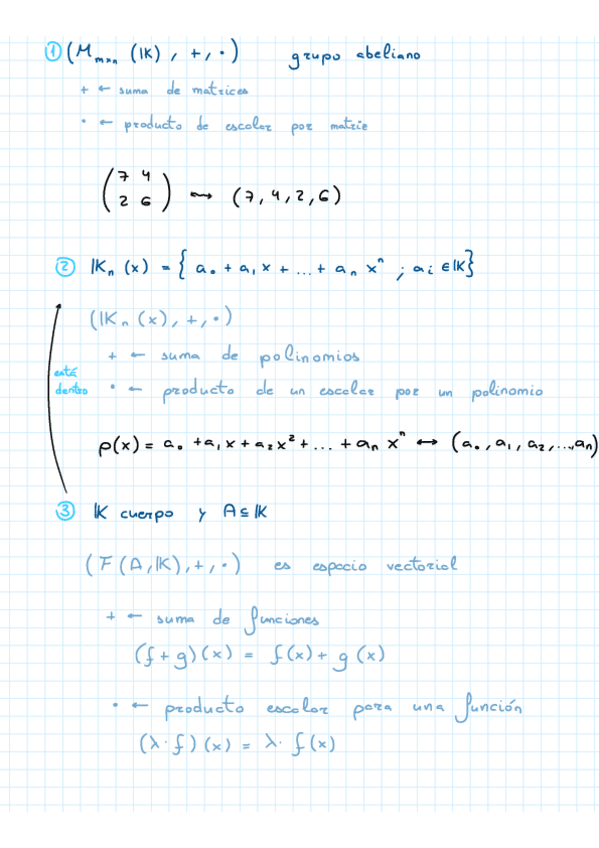 ① (M_{m×n} (𝕂), +, ·) grupo abeliano
+ ← suma de matrices
· ← producto de escalar por matriz
(7 4
2 6) ⇝ (7, 4, 2, 6)
② 𝕂ₙ (x) = { a₀ + a₁ x + ... + aₙ xⁿ ; aᵢ ∈ 𝕂}
(𝕂ₙ (x), +, ·)
+ ← suma de polinomios
está
dentro
· ← producto de un escalar por un polinomio
p(x) = a₀ + a₁ x + a₂ x² + ... + aₙ xⁿ ↔ (a₀, a₁, a₂, ..., aₙ)
③ 𝕂 cuerpo y A ⊆ 𝕂
(F (A, 𝕂), +, ·) es espacio vectorial
+ ← suma de funciones
(f + g) (x) = f(x) + g (x)
· ← producto escalar para una función
(λ · f) (x) = λ · f (x)